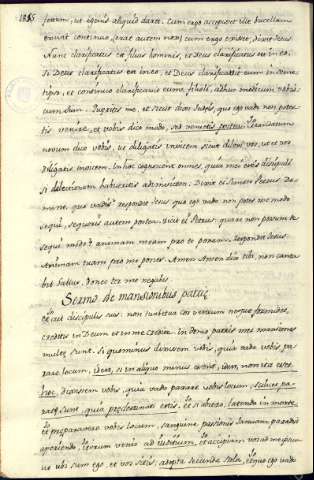 festum, ut egenis aliquid daret. Cum ergo accepisset ille buccellam
exivit continuo, erat autem nox; cum ergo exisset, dixit Jesus
Nunc clarificatus est filius hominis, et Deus clarificatus est in eo.
Si Deus clarificatus est in eo, et Deus clarificabit eum in seme-
tipso, et continuo clarificabit eum. filioli, adhuc modicum vobis-
cum sum. Quæretis me, et sicut dixi Judæis, quo ego vado non potes-
tis venire, et vobis dico modo,
novum do vobis, ut diligatis invicem, sicut dilexi vos, ut et vos
diligatis invicem. In hoc cognoscent omnes, quia mei estis discipuli
si dilectionem habueritis ad invicem. Dixit ei Simon Petrus Do-
mine, quo vadis? respondit Jesus quo ego vado non potes me modo
sequi, sequeris autem postea. dicit ei Petrus: quare non possum te
sequi modo? animam meam pro te ponam. respondit Jesus
Animam tuam pro me pones. Amen Amen dico tibi, non canta-
bit Gallus, donec ter me neges.
Sermo de mansionibus patris
Et ait discipulis suis. non turbetur cor vestrum neque formidet,
creditis in Deum et in me credite. In domo patris mei mansiones
multæ sunt. Si quominus dixissem vobis, quia vado vobis pa-
rare locum,
hoc, dixissem vobis, quia vado parare vobis locum,
sunt, quia prædestinati estis. Et si abiero, latendo in morte
et præparavero vobis locum, sanguine passionis januam paradisi
aperiendo, iterum venio ad et accipiam vos ad me ipsum
ut ubi sum ego, et vos sitis, Et quo ego vado